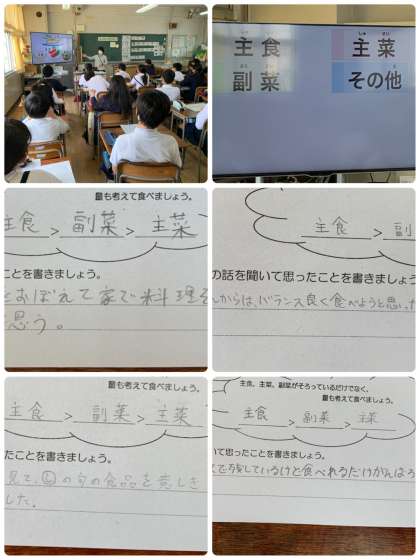 主食
しゅ さい
主菜
副菜
その他
量も考えて食べましょう。
主食 > 副菜 > 主菜
ことを書きましょう。
とおぼえて家で料理を
思う。
主食 > 副
の話を聞いて思ったことを書きましょう
からは、バランス良く食べようと思った
量も考えて食べましょう。
主食 > 副菜 > 主菜
たことを書きましょう。
見て、の旬の食品を楽しき
した。
主食、主菜、副菜がそろっているだけでなく、
量も考えて食べましょう。
主食 > 副菜 > 主菜
て思ったことを書きましょう。
で残しているけど食べれるだけがんばろ